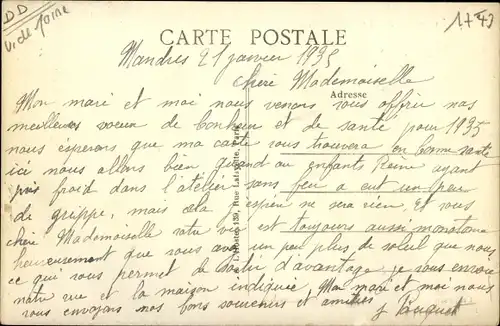 DD
1743
CARTE POSTALE
Mandres 21 janvier 1935
chère Mademoiselle
Adresse
Mon mari et moi nous venons vous offrir nos
meilleurs vœux de bonheur et de santé pour 1935
nous esperons que ma carte vous trouvera en bonne santé
ici nous allons bien quand au enfants Reine ayant
pris froid dans l'atelier sans feu a eut un peu
de grippe, mais cela espère ne sera rien. Et vous
chère Mademoiselle votre vie est toujours aussi monotone
heureusement que vous avez un peu plus de soleil que nous
ce qui vous permet de sortir d'avantage je vous envoie
notre vue et la maison indiquée, Mon mari et moi nous
vous envoyons nos bons souvenirs et amitiés